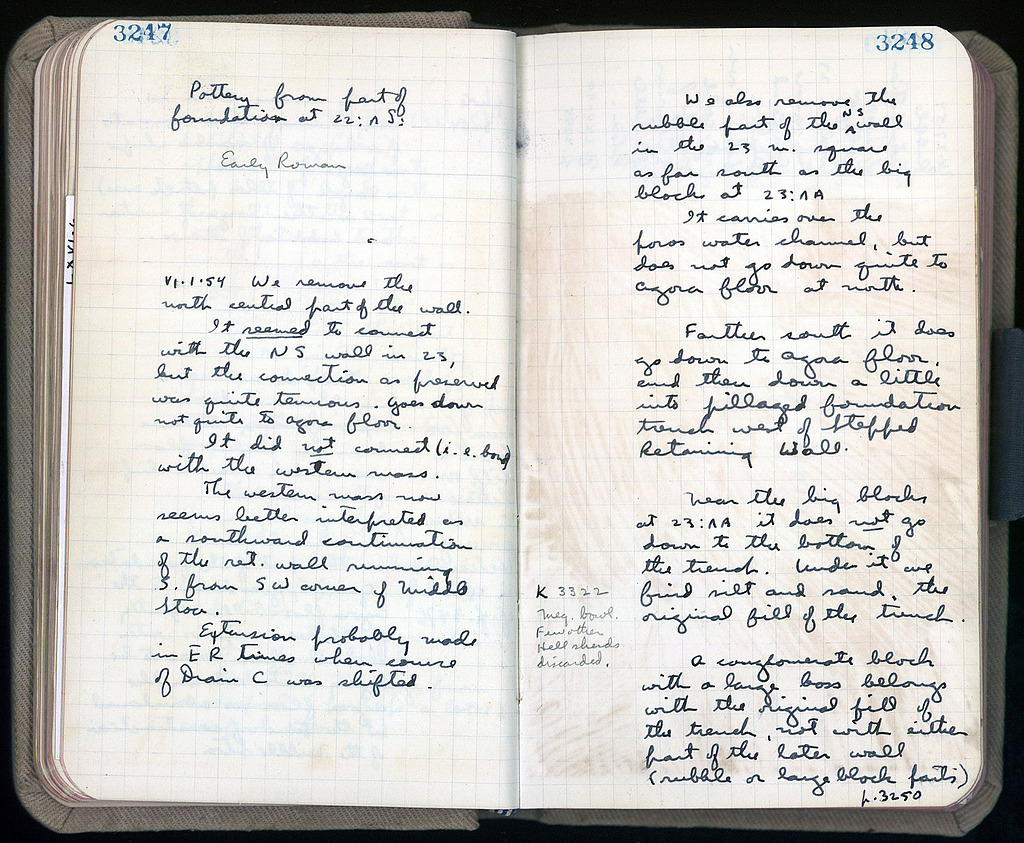 3247
Pottery from part of
foundation at 22:ΛS:
Early Roman
VI.1.54 We remove the
north central part of the wall.
It seemed to connect
with the NS wall in 23,
but the connection as preserved
was quite tenuous. Goes down
not quite to agora floor.
It did not connect (i.e. bond)
with the western mass.
The western mass now
seems better interpreted as
a southward continuation
of the ret. wall running
S. from SW corner of Middle
Stoa.
Extension probably made
in ER times when course
of Drain C was shifted.
3248
We also remove the
rubble part of the NS wall
in the 23 m. square
as far south as the big
blocks at 23:ΛA
It carries over the
poros water channel, but
does not go down quite to
agora floor at north.
Farther south it does
go down to agora floor,
and then down a little
into pillaged foundation
trench west of Stepped
Retaining Wall.
Near the big blocks
at 23:ΛA it does not go
down to the bottom of
the trench. Under it we
find silt and sand, the
original fill of the trench.
K 3322
Meg. bowl.
Few other
Hell sherds
discarded.
A conglomerate block
with a large boss belongs
with the original fill of
the trench, not with either
part of the later wall
(rubble or large block parts)
p. 3250